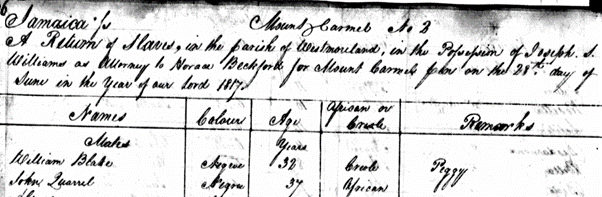 Jamaica Ss Mount Carmel No 2
A Return of Slaves, in the parish of Westmoreland, in the Possession of Joseph. S.
Williams as Attorney to Horace Beckford for Mount Carmel Pen on the 28th day of
June in the Year of our Lord 1817.
Names Colour Age African or Creole Remarks
Males Years
William Blake Negroe 32 Creole Peggy
John Quarrel Negroe 37 African